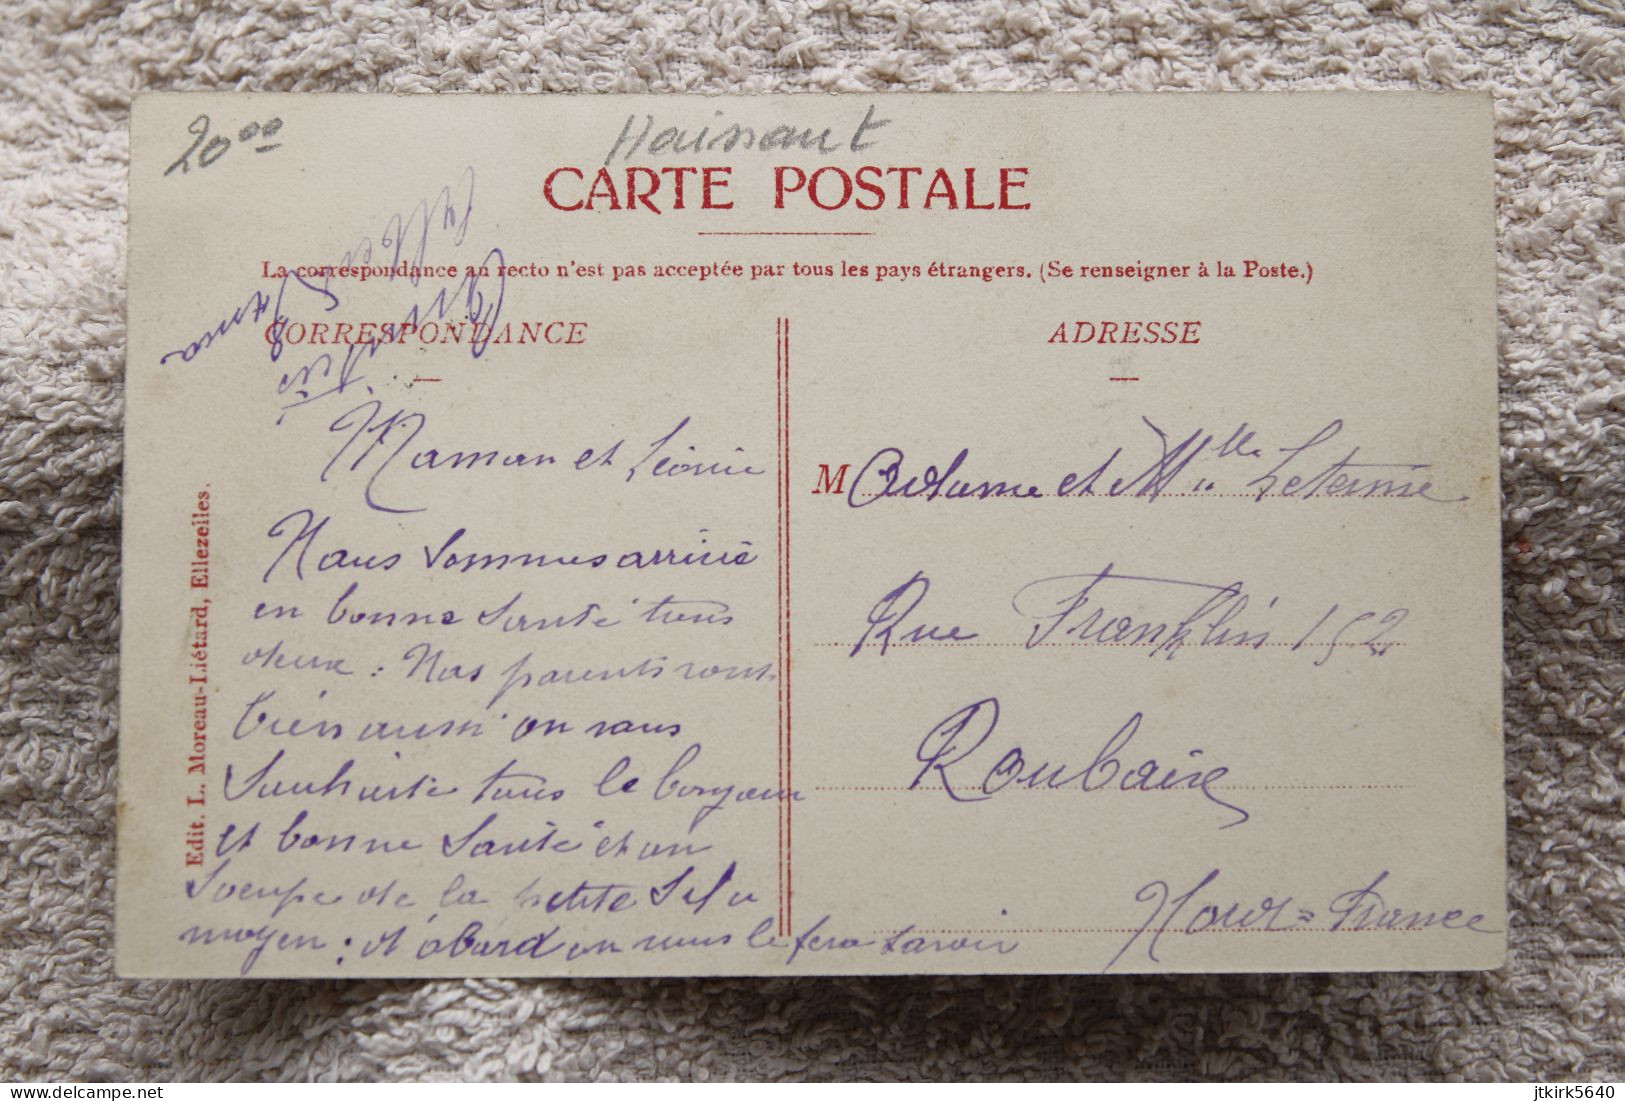 20 00
Hainaut
CARTE POSTALE
La correspondance au recto n'est pas acceptée par tous les pays étrangers. (Se renseigner à la Poste.)
CORRESPONDANCE
Maman et Léonie
Nous sommes arrivés
en bonne santé tous
deux : Nos parents vont
bien aussi on vous
Souhaite tous le bonjour
et bonne Santé et on
Soccupe de la petite
moyen : d'abord on vous le fera savoir
Edit. L. Moreau-Liétard, Ellezelles.
ADRESSE
Madame et Mlle Leterme
Rue Franklin 152
Roubaix
Nord = France
delcampe.net
jtkirk5640